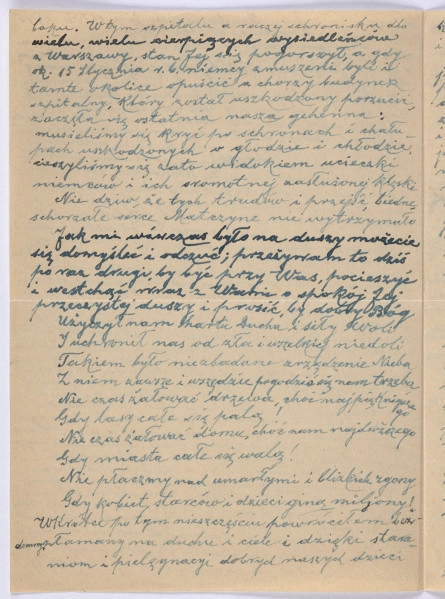 baku. W tym szpitalu a raczej schronisku dla
wielu, wielu cierpiących wysiedleńców
z Warszawy, stan Jej się pogorszył, a gdy
ok. 15 Stycznia r. b. niemcy zmuszeni byli i
tamte okolice opuścić a chorzy budynek
szpitalny, który został uszkodzony porzucić,
zaczęła się ostatnia nasza gehenna:
musieliśmy się kryć po schronach i chału-
pach uszkodzonych o głodzie i chłodzie,
cieszyliśmy się za to widokiem ucieczki
niemców i ich sromotnej zasłużonej klęski
Nie dziw, że tych trudów i przejść biedne
schorzałe serce Matczyne nie wytrzymało
Jak mi wówczas było na duszy możecie
się domyśleć i odczuć; przeżywam to dziś
po raz drugi, by być przy Was, pocieszyć
i westchnąć wraz z Wami o spokój Jej
przeczystej duszy i prosić, by dobry Bóg
Użyczył nam hartu Ducha i siły Woli
I uchronił nas od zła i wszelkiej niedoli
Takiem było niezbadane zrządzenie Nieba
Z niem zawsze i wszędzie pogodzić się nam trzeba
Nie czas żałować drzewa, choć najpiękniejsze
go
Gdy lasy całe się palą!
Nie czas żałować domu, choć nam najdroższego
Gdy miasta całe się walą!
Nie płaczmy nad umarłymi i bliskich zgony
Gdy kobiet, starców i dzieci giną miljony!
Wkrótce po tym nieszczęściu powróciłem
łamany na duchu i ciele i dzięki stara-
niom i pielęgnacji dobrych naszych dzieci